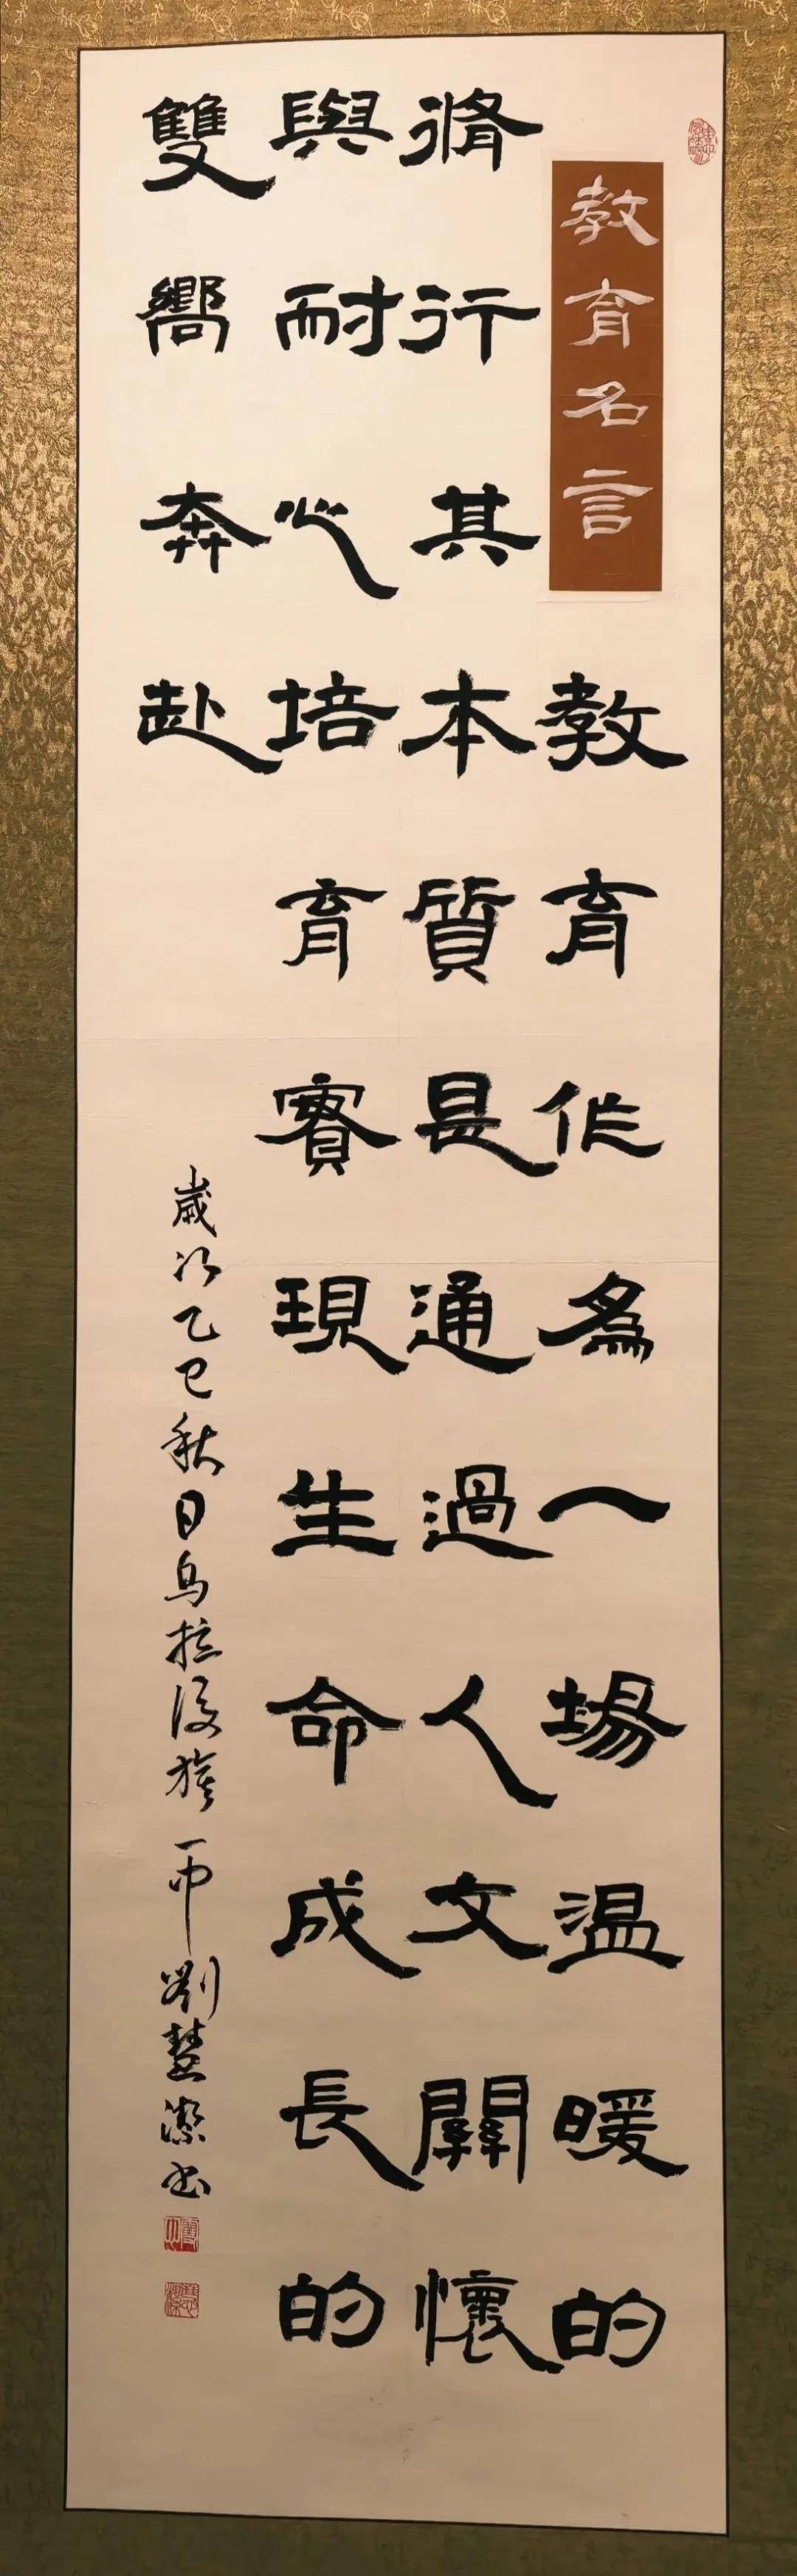 教育名言
教育作為一場溫暖的
脩行其本質是通過人文關懷
與耐心培育實現生命成長的
雙嚮奔赴
歲次乙巳秋日烏拉後旗一中劉慧潔書